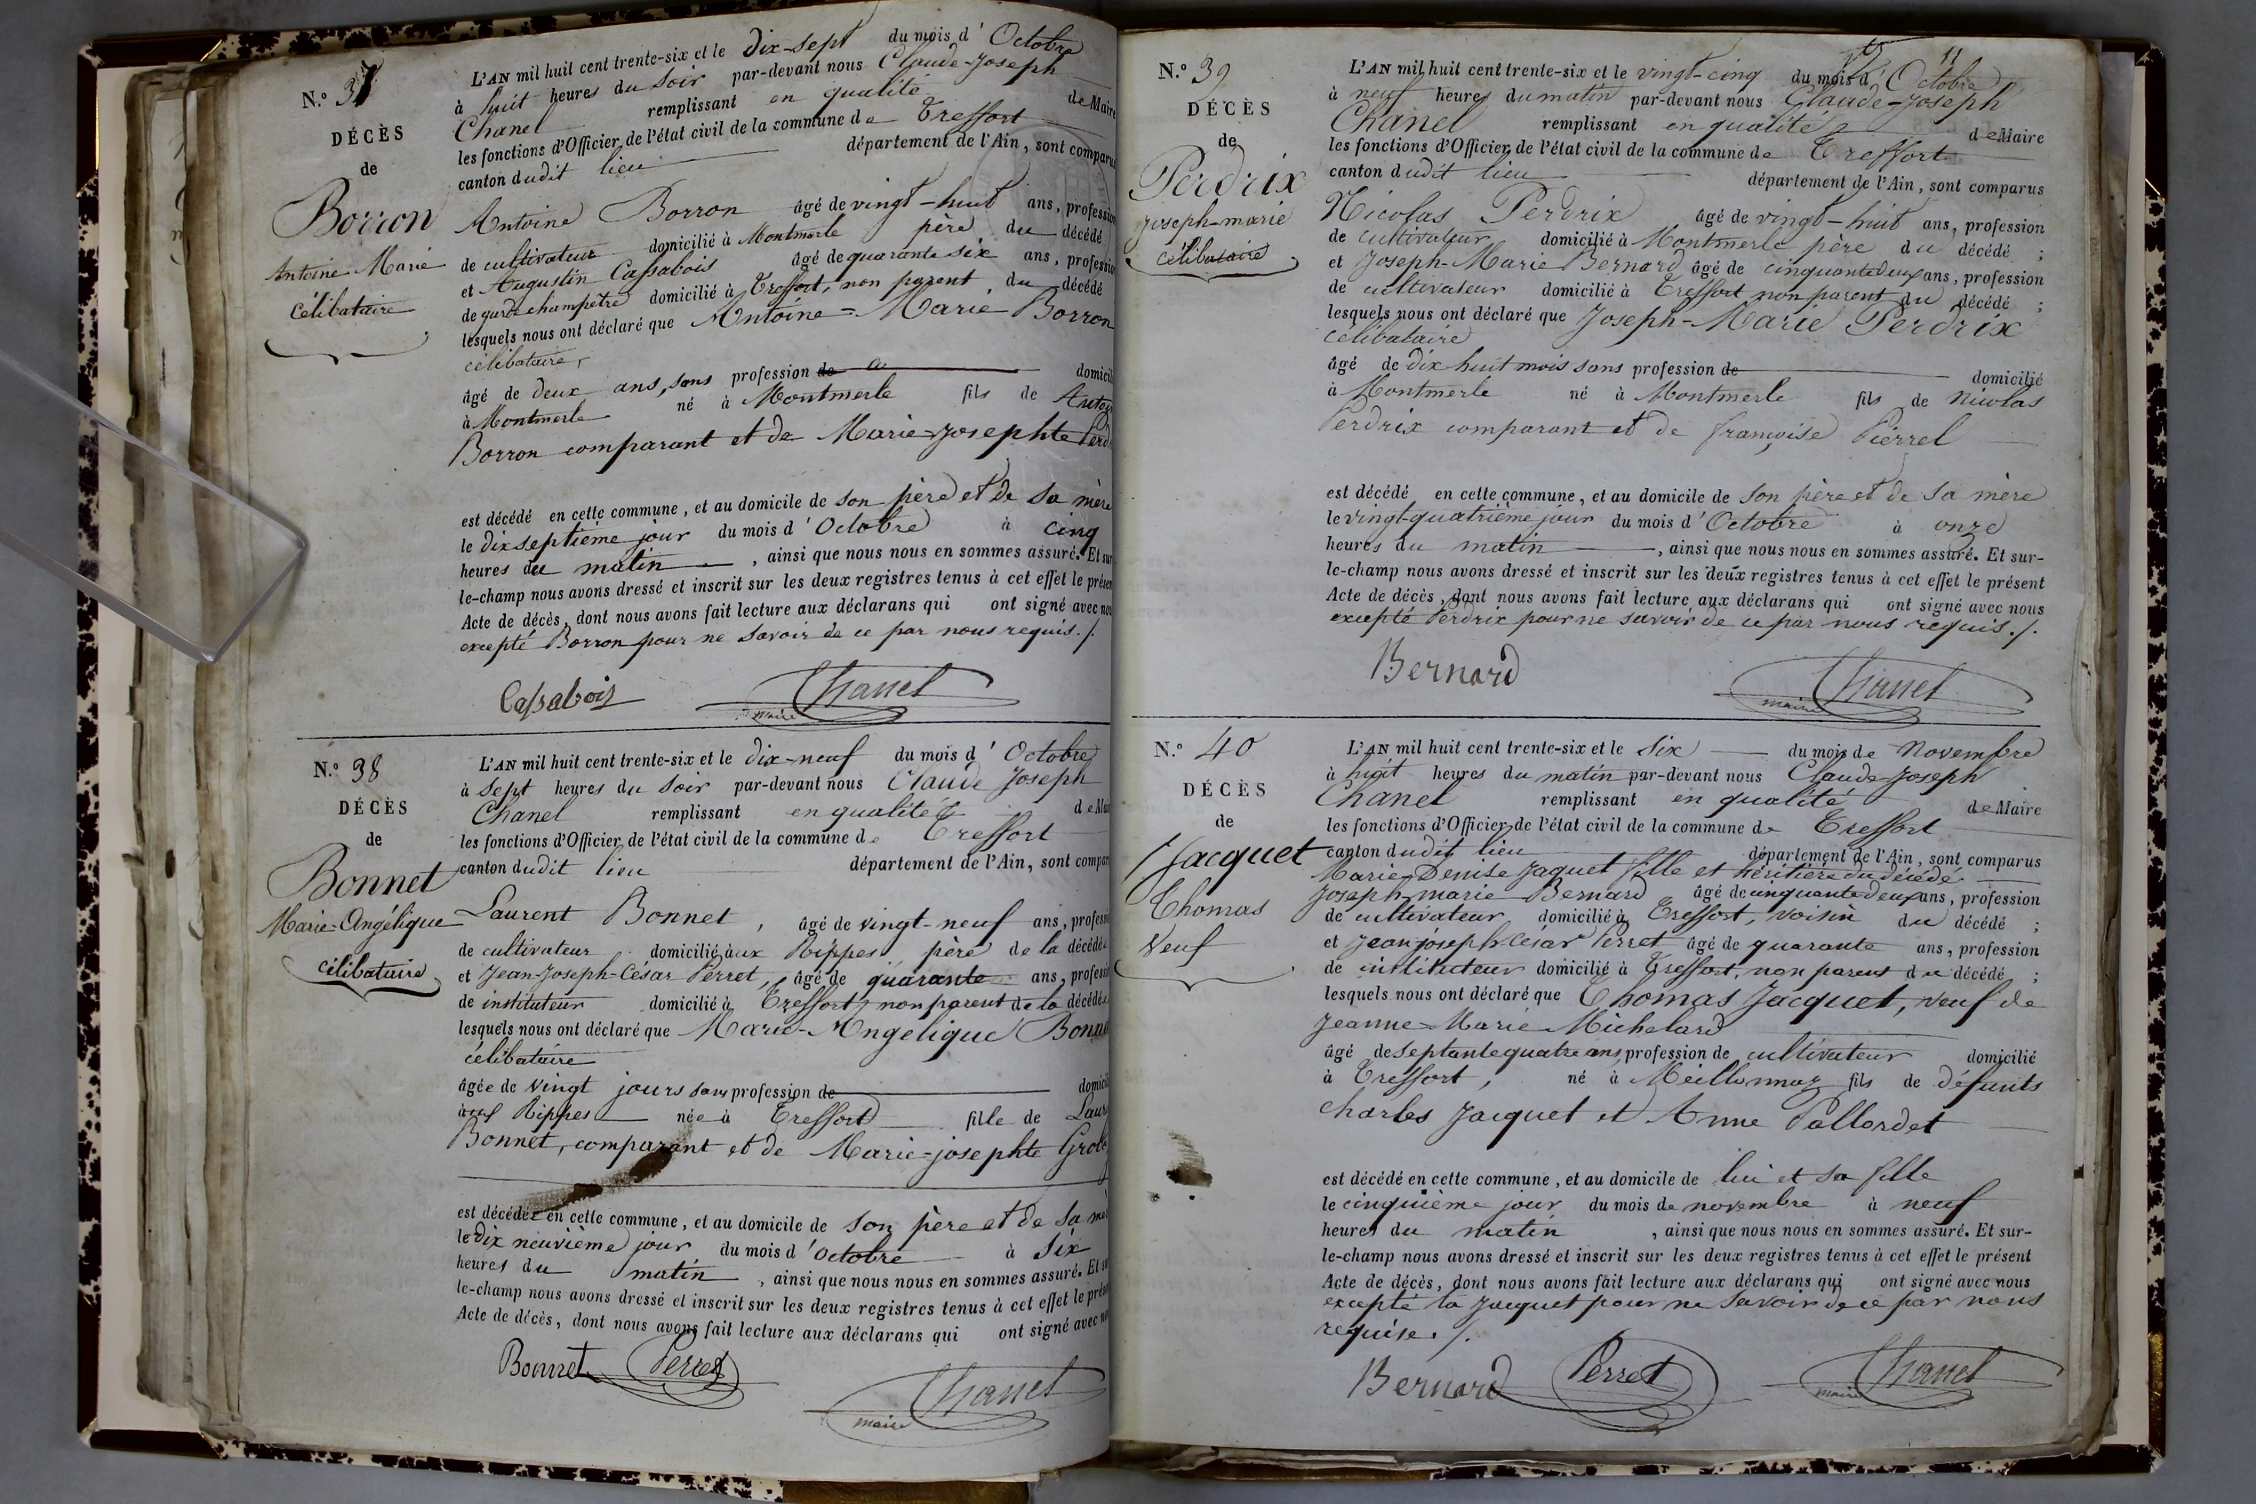 N.º 37
DÉCÈS
de
Borron
Antoine Marie
célibataire
L'AN mil huit cent trente-six et le dix-sept du mois d'Octobre
à huit heures du soir par-devant nous Claude-Joseph
Chanel remplissant en qualité de Maire
les fonctions d'Officier de l'état civil de la commune de Treffort
canton dudit lieu département de l'Ain, sont comparus
Antoine Borron âgé de vingt-huit ans, profession
de cultivateur domicilié à Montmerle père du décédé
et Augustin Cassabois âgé de quarante six ans, profession
de garde champêtre domicilié à Treffort, non parent du décédé
lesquels nous ont déclaré que Antoine-Marie Borron
célibataire,
âgé de deux ans, sans profession de domicil
à Montmerle né à Montmerle fils de Antoi
Borron comparant et de Marie-Josephte Perd
est décédé en cette commune, et au domicile de son père et de sa mère
le dix septième jour du mois d'Octobre à cinq
heures du matin, ainsi que nous nous en sommes assuré. Et sur
le-champ nous avons dressé et inscrit sur les deux registres tenus à cet effet le présen
Acte de décès, dont nous avons fait lecture aux déclarans qui ont signé avec nou
excepté Borron pour ne savoir de ce par nous requis./.
Cassabois Chanel
maire
N.º 38
DÉCÈS
de
Bonnet
Marie-Angélique
célibataire
L'AN mil huit cent trente-six et le dix-neuf du mois d'Octobre
à sept heures du soir par-devant nous Claude Joseph
Chanel remplissant en qualité de Mai
les fonctions d'Officier de l'état civil de la commune de Treffort
canton dudit lieu département de l'Ain, sont compar
Laurent Bonnet, âgé de vingt-neuf ans, professi
de cultivateur domicilié aux Rippes père de la décédée
et Jean-Joseph-César Perret, âgé de quarante ans, professi
de instituteur domicilié à Treffort, non parent de la décédée
lesquels nous ont déclaré que Marie-Angélique Bonn
célibataire
âgée de vingt jours sans profession de domicil
aux Rippes née à Treffort fille de Laur
Bonnet, comparant et de Marie-josephte
est décédée en cette commune, et au domicile de son père et de sa mè
le dix neuvième jour du mois d'Octobre à six
heures du matin, ainsi que nous nous en sommes assuré. Et su
le-champ nous avons dressé et inscrit sur les deux registres tenus à cet effet le prése
Acte de décès, dont nous avons fait lecture aux déclarans qui ont signé avec no
Bonnet Perret Chanel
maire
11
N.º 39
DÉCÈS
de
Perdrix
joseph-marie
célibataire
L'AN mil huit cent trente-six et le vingt-cinq du mois d'Octobre
à neuf heures du matin par-devant nous Claude-Joseph
Chanel remplissant en qualité de Maire
les fonctions d'Officier de l'état civil de la commune de Treffort
canton dudit lieu département de l'Ain, sont comparus
Nicolas Perdrix âgé de vingt-huit ans, profession
de cultivateur domicilié à Montmerle père du décédé ;
et Joseph-Marie Bernard âgé de cinquante deux ans, profession
de cultivateur domicilié à Treffort non parent du décédé ;
lesquels nous ont déclaré que Joseph-Marie Perdrix
célibataire
âgé de dix huit mois sans profession de domicilié
à Montmerle né à Montmerle fils de Nicolas
Perdrix comparant et de françoise Pierrel
est décédé en cette commune, et au domicile de son père et de sa mère
le vingt-quatrième jour du mois d'Octobre à onze
heures du matin, ainsi que nous nous en sommes assuré. Et sur-
le-champ nous avons dressé et inscrit sur les deux registres tenus à cet effet le présent
Acte de décès, dont nous avons fait lecture aux déclarans qui ont signé avec nous
excepté Perdrix pour ne savoir de ce par nous requis./.
Bernard Chanel
maire
N.º 40
DÉCÈS
de
Jacquet
Thomas
Veuf
L'AN mil huit cent trente-six et le six du mois de Novembre
à huit heures du matin par-devant nous Claude-Joseph
Chanel remplissant en qualité de Maire
les fonctions d'Officier de l'état civil de la commune de Treffort
canton dudit lieu département de l'Ain, sont comparus
Marie-Denise Jaquet fille et héritière du décédé
Joseph marie Bernard âgé de cinquante deux ans, profession
de cultivateur domicilié à Treffort, voisin du décédé ;
et Jean-joseph-César Perret âgé de quarante ans, profession
de instituteur domicilié à Treffort, non parent du décédé ;
lesquels nous ont déclaré que Thomas Jacquet, veuf de
Jeanne-Marie Michelard
âgé de septante quatre ans profession de cultivateur domicilié
à Treffort, né à Meillonnaz fils de défunts
charles Jacquet et Anne Pallordet
est décédé en cette commune, et au domicile de lui et sa fille
le cinquième jour du mois de novembre à neuf
heures du matin, ainsi que nous nous en sommes assuré. Et sur-
le-champ nous avons dressé et inscrit sur les deux registres tenus à cet effet le présent
Acte de décès, dont nous avons fait lecture aux déclarans qui ont signé avec nous
excepté la Jacquet pour ne savoir de ce par nous
requise./.
Bernard Perret Chanel
maire